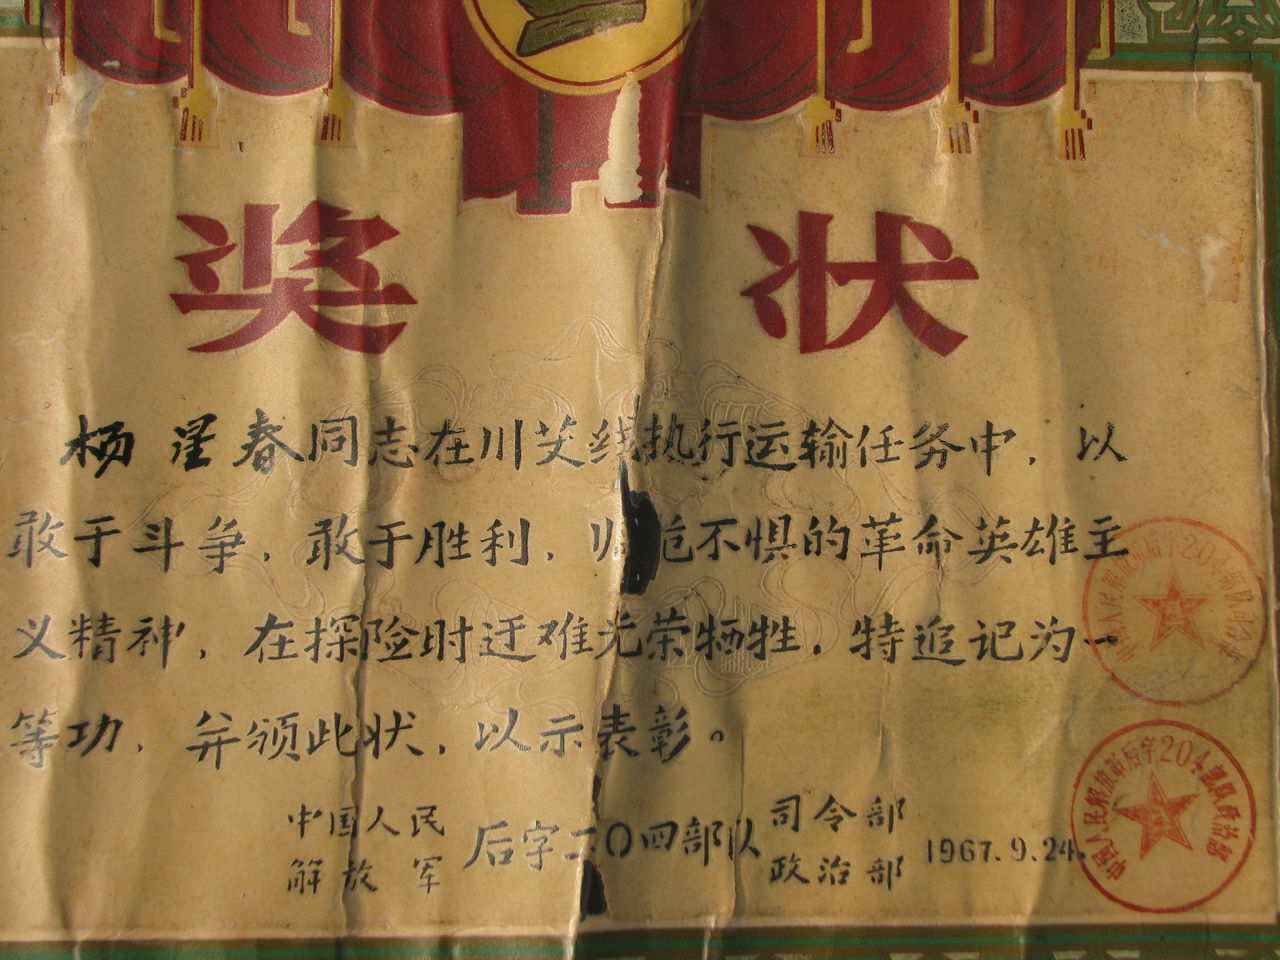 奖状
杨星春同志在川藏线执行运输任务中，以
敢于斗争，敢于胜利，临危不惧的革命英雄主
义精神，在探险时迂难光荣牺牲，特追记为一
等功，并颁此状，以示表彰。
中国人民解放军后字二〇四部队司令部政治部 1967.9.24.
中国人民解放军后字204部队司令部
中国人民解放军后字204部队政治部